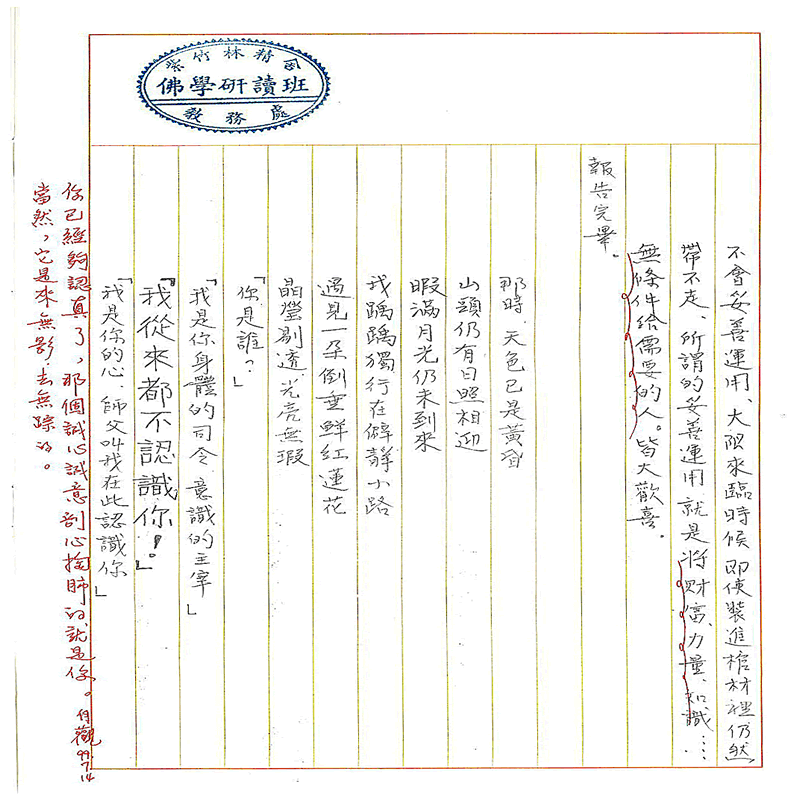 紫竹林精舍
佛學研讀班
教務處
不會妥善運用、大限來臨時候 即使裝進棺材裡仍然
帶不走、所謂的妥善運用 就是將財富、力量、知識……
無條件給需要的人。皆大歡喜。
報告完畢。
那時、天色已是黃昏
山頭仍有日照相迎
暇滿月光仍未到來
我踽踽獨行在僻靜小路
遇見一朵倒垂鮮紅蓮花
晶瑩剔透 光亮無瑕
「你是誰？」
「我是你身體的司令 意識的主宰」
「我從來都不認識你！。」
「我是你的心、師父叫我在此認識你」
你已經夠認真了，那個誠心誠意剖心掏肺的就是你。
當然，它是來無影、去無踪的。
自觀
99.7.14